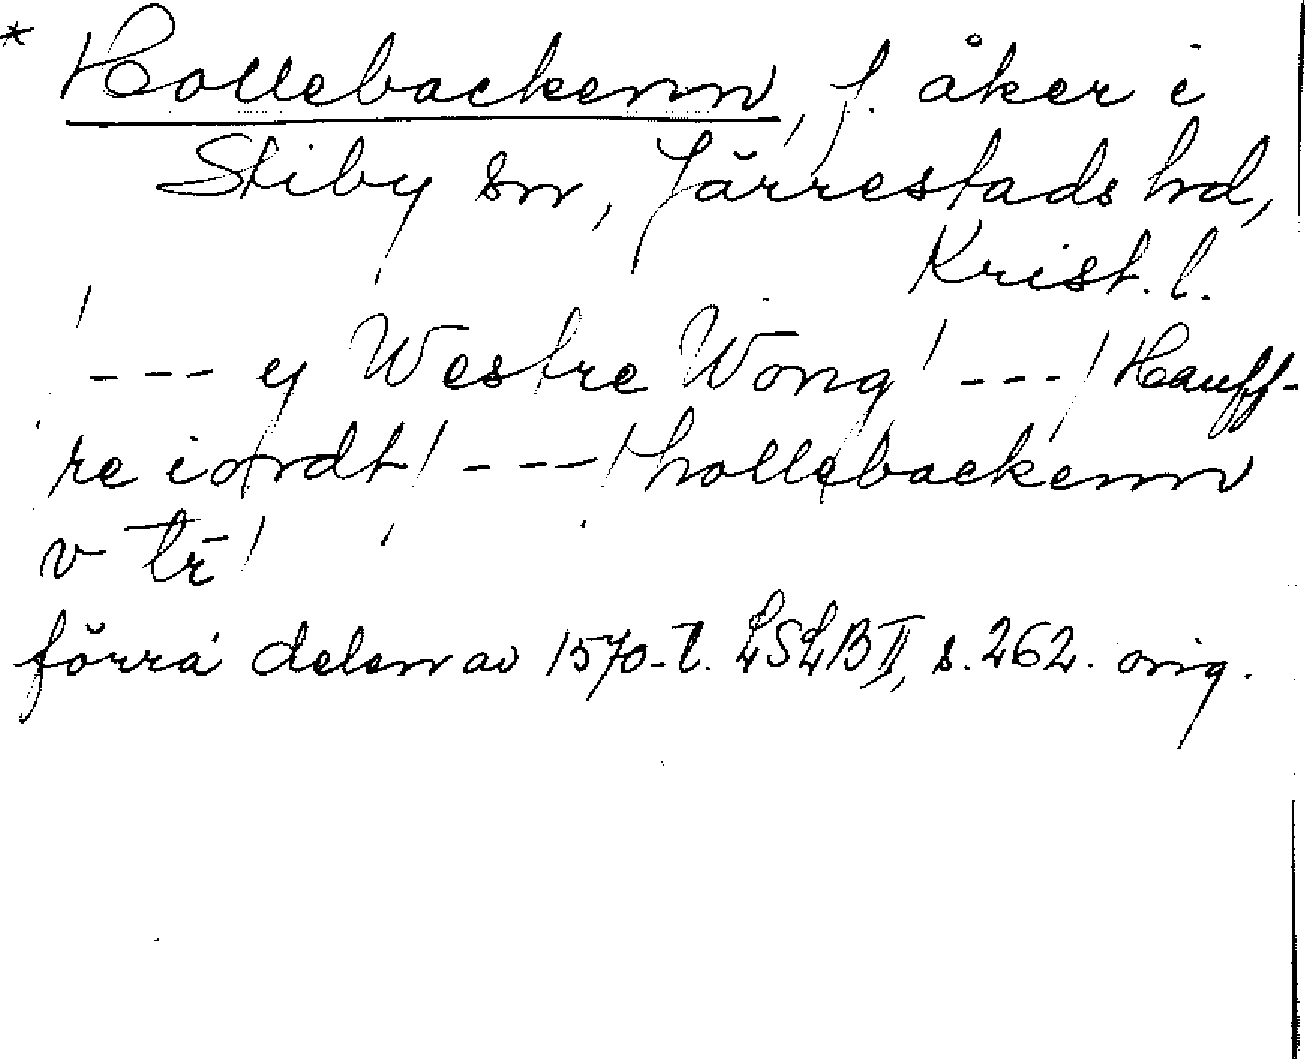 * Hollebackenn, f. åker i
Stiby sn, Järrestads hd,
Krist. l.
' --- y Westre Wong' --- / Hauff-
re iordt / --- / hollebackenn
v tr̄ '
förra delen av 1570-t. LSLB II, s. 262. orig.